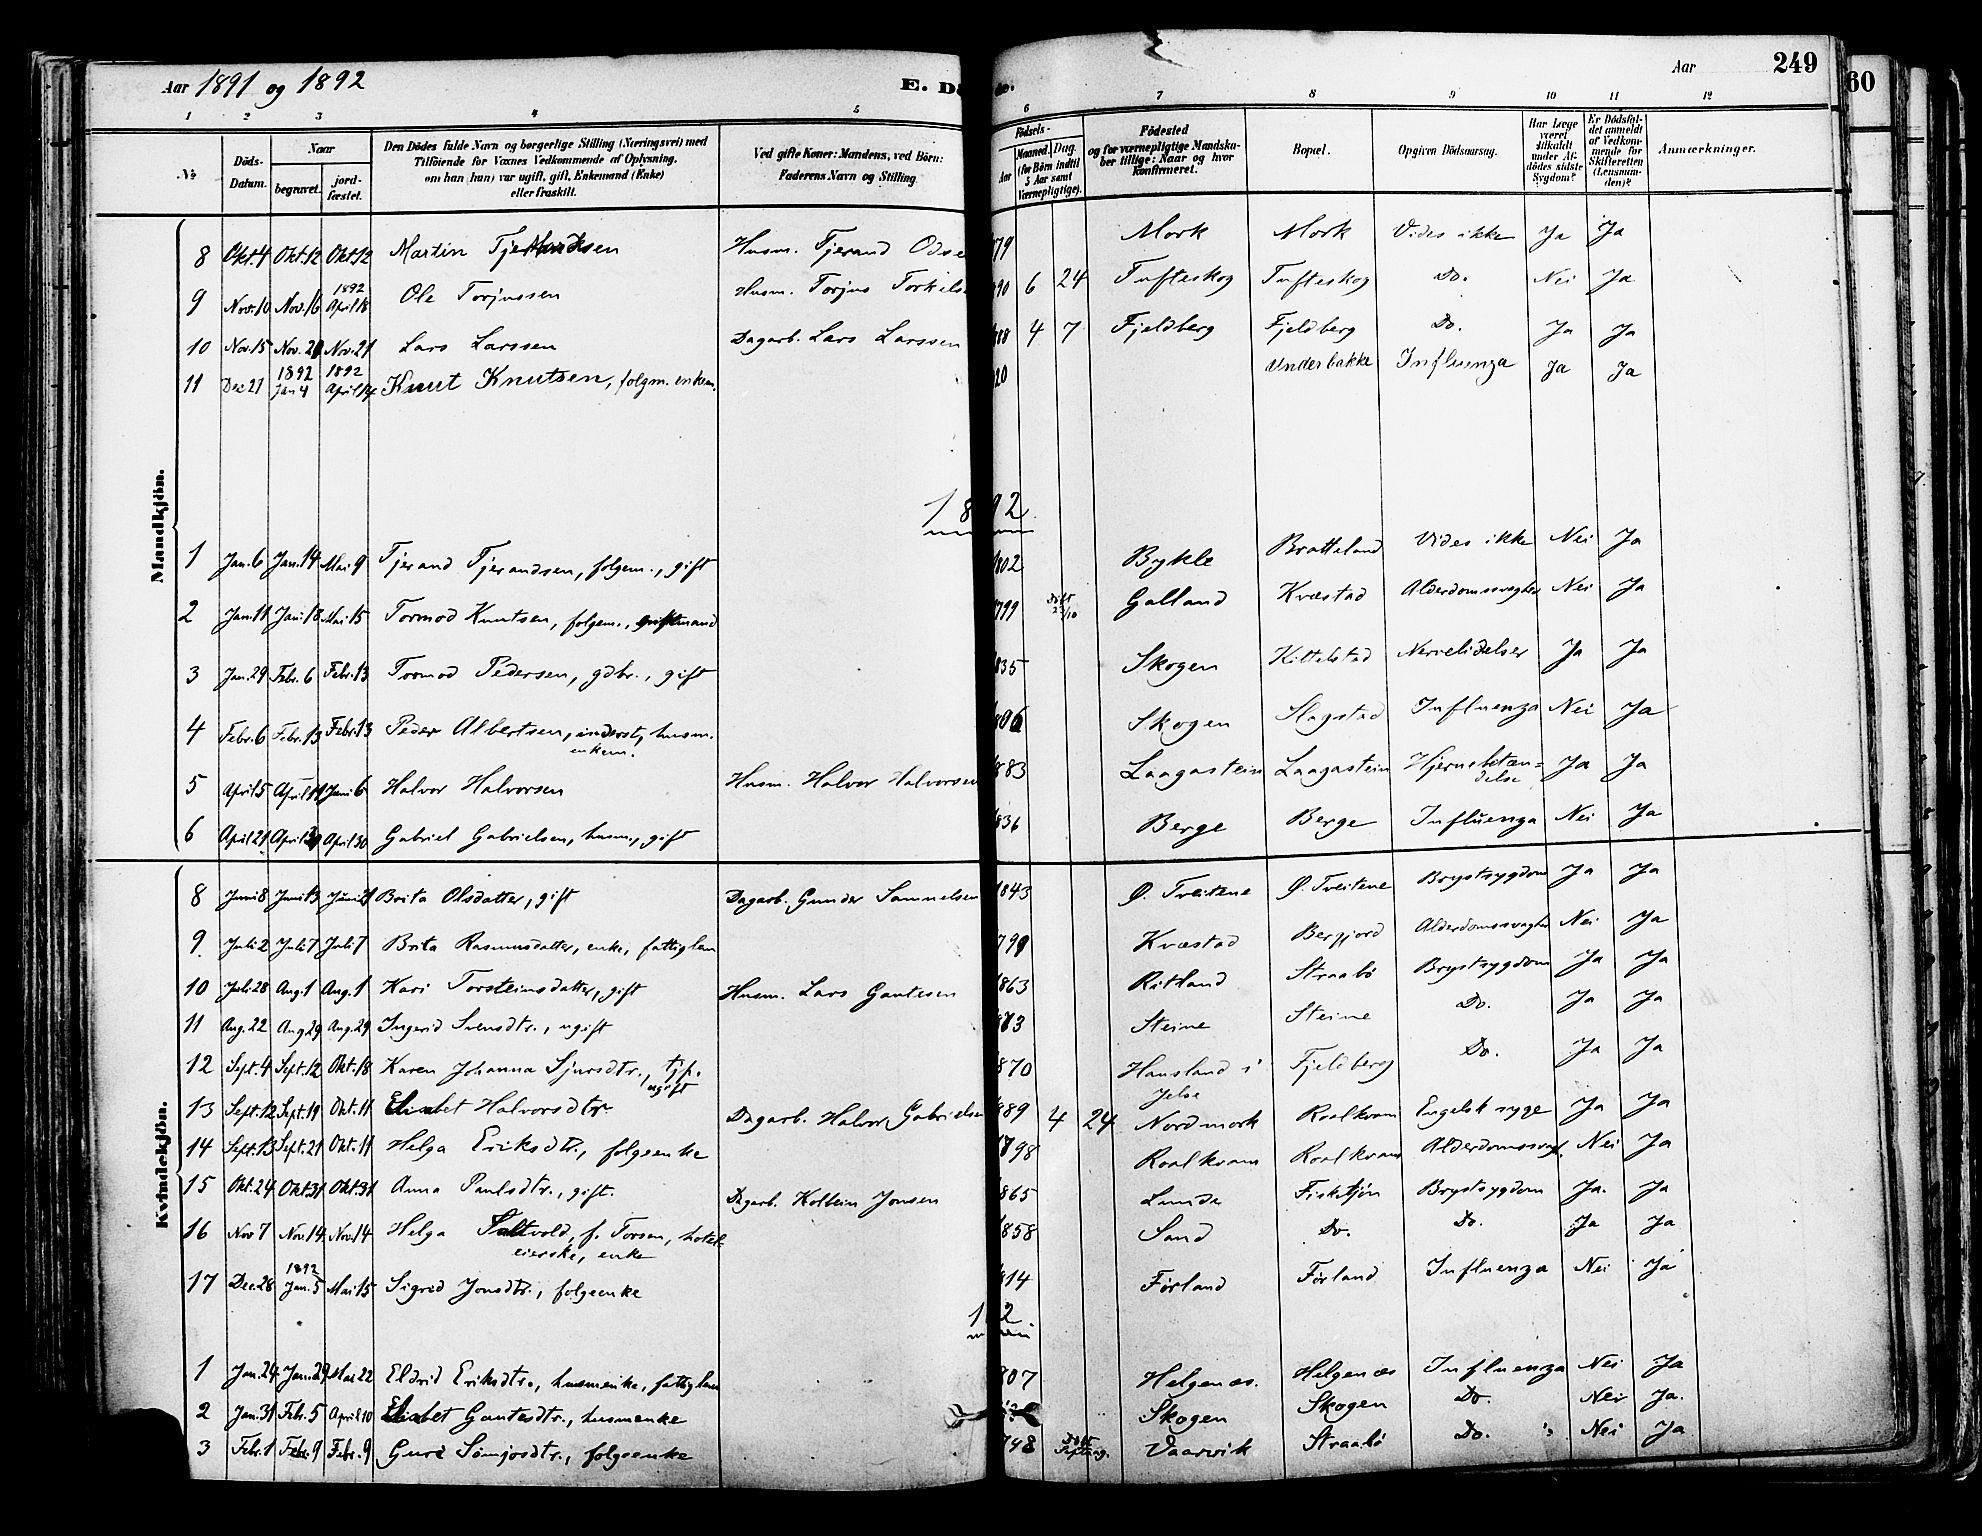 Aar 1891 og 1892
E. Dø
de.
Aar
249
60
1 2 3 4 5 6 7 8 9 10 11 12
№
Döds-Datum.
Naar
begravet.
jord-fæstet.
Den Dödes fulde Navn og borgerlige Stilling (Næringsvei) med
Tilföiende for Voxnes Vedkommende af Oplysning,
om han (hun) var ugift, gift, Enkemand (Enke)
eller fraskilt.
Ved gifte Koner: Mandens, ved Börn:
Faderens Navn og Stilling.
Födsels-
Aar
Maaned. Dag.
(for Börn indtil 5 Aar samt Værnepligtige).
Födested
og for værnepligtige Mandskaber tillige: Naar og hvor konfirmeret.
Bopæl.
Opgiven Dödsaarsag.
Har Læge været tilkaldt under Afdödes sidste Sygdom?
Er Dödsfaldet anmeldt af Vedkommende for Skifteretten (Lensmanden)?
Anmærkninger.
Mandkjön.
8 Okt.4 Okt.12 Okt.12 Martin Tjerandsen Husm. Tjerand Odse 79 Mork Mork Vides ikke Ja Ja
9 Nov.10 Nov.16 1892 April 18 Ole Torjussen Husm. Torjus Torkils 90 6 24 Tufteskog Tufteskog Do. Nei Ja
10 Nov.15 Nov.21 Nov.21 Lars Larssen Dagarb. Lars Larssen 88 4 7 Fjeldberg Fjeldberg Do. Ja Ja
11 Dec.21 1892 Jan 4 1892 April 14 Knut Knutsen, folgm. enkem. 20 Underbakke Influenza Ja Ja
1892
1 Jan.6 Jan.14 Mai 9 Tjerand Tjerandsen, folgem., gift 802 Bykle Bratteland Vides ikke Nei Ja
2 Jan.11 Jan.18 Mai 15 Tormod Knutsen, folgem., giftmand 799 døbt 23/10 Galland Kvæstad Alderdomssvaghed Nei Ja
3 Jan.29 Febr.6 Febr.13 Tormod Pedersen, gdbr., gift 835 Skogen Kittelstad Nervelidelser Ja Ja
4 Febr.6 Febr.13 Febr.13 Peder Albertsen, inderst, husm. enkem. 806 Skogen Slagstad Influenza Nei Ja
5 April 5 April 14 Juni 6 Halvor Halvorsen Husm. Halvor Halvorsen 883 Laagastein Laagastein Hjernebetændelse Ja Ja
6 April 21 April 30 April 30 Gabriel Gabrielsen, husm., gift 836 Berge Berge Influenza Nei Ja
Kvindekjön.
8 Juni 8 Juni 13 Juni 21 Brita Olsdatter, gift Dagarb. Gunder Samuelsen 1843 Ø. Tveitene Ø. Tveitene Brystsygdom Ja Ja
9 Juli 2 Juli 7 Juli 7 Brita Rasmusdatter, enke, fattiglem 799 Kvæstad Bergjord Alderdomssvaghed Nei Ja
10 Juli 28 Aug.1 Aug.1 Kari Torsteinsdatter, gift Husm. Lars Gautesen 863 Ritland Straabø Brystsygdom Ja Ja
11 Aug.22 Aug 29 Aug.29 Ingerid Svensdtr., ugift 873 Steine Steine Do. Ja Ja
12 Sept.4 Sept.12 Okt.18 Karen Johanna Sjursdtr., tjp. ugift 870 Hausland i Jelse Fjeldberg Do. Ja Ja
13 Sept.12 Sept.19 Okt.11 Elisabet Halvorsdtr Dagarb. Halvor Gabrielsen 889 4 24 Nordmork Roalkvam Engelsk syge Ja Ja
14 Sept.13 Sept.21 Okt.11 Helga Eriksdtr., folgeenke 1798 Roalkvam Roalkvam Alderdomssvagh. Nei Ja
15 Okt.24 Okt.31 Okt.31 Anna Paulsdtr., gift. Dagarb. Kolbein Jonsen 865 Lunde Fisketjön Brystsygdom Ja. Ja
16 Nov 7 Nov.14 Nov.14 Helga Saltvold, f. Torsen, hotel-eierske, enke 858 Sand Do. Do. Ja Ja
17 Dec.28 1892 Jan.5 Mai 15 Sigrid Jonsdtr., folgeenke 814 Førland Førland Influenza Nei Ja
1 2
1 Jan.24 Jan.29 Mai 22 Eldrid Eriksdtr., husmenke, fattiglem 807 Helgenæs. Helgenæs Influenza Nei Ja
2 Jan.31 Febr.5 April 10 Elisabet Gautesdtr., husmenke Skogen Skogen Do. Nei Ja.
3 Febr.1 Febr.9 Febr.9 Guri Sømjosdtr., folgeenke 798 døbt Vaarvik Straabø Do. Nei Ja